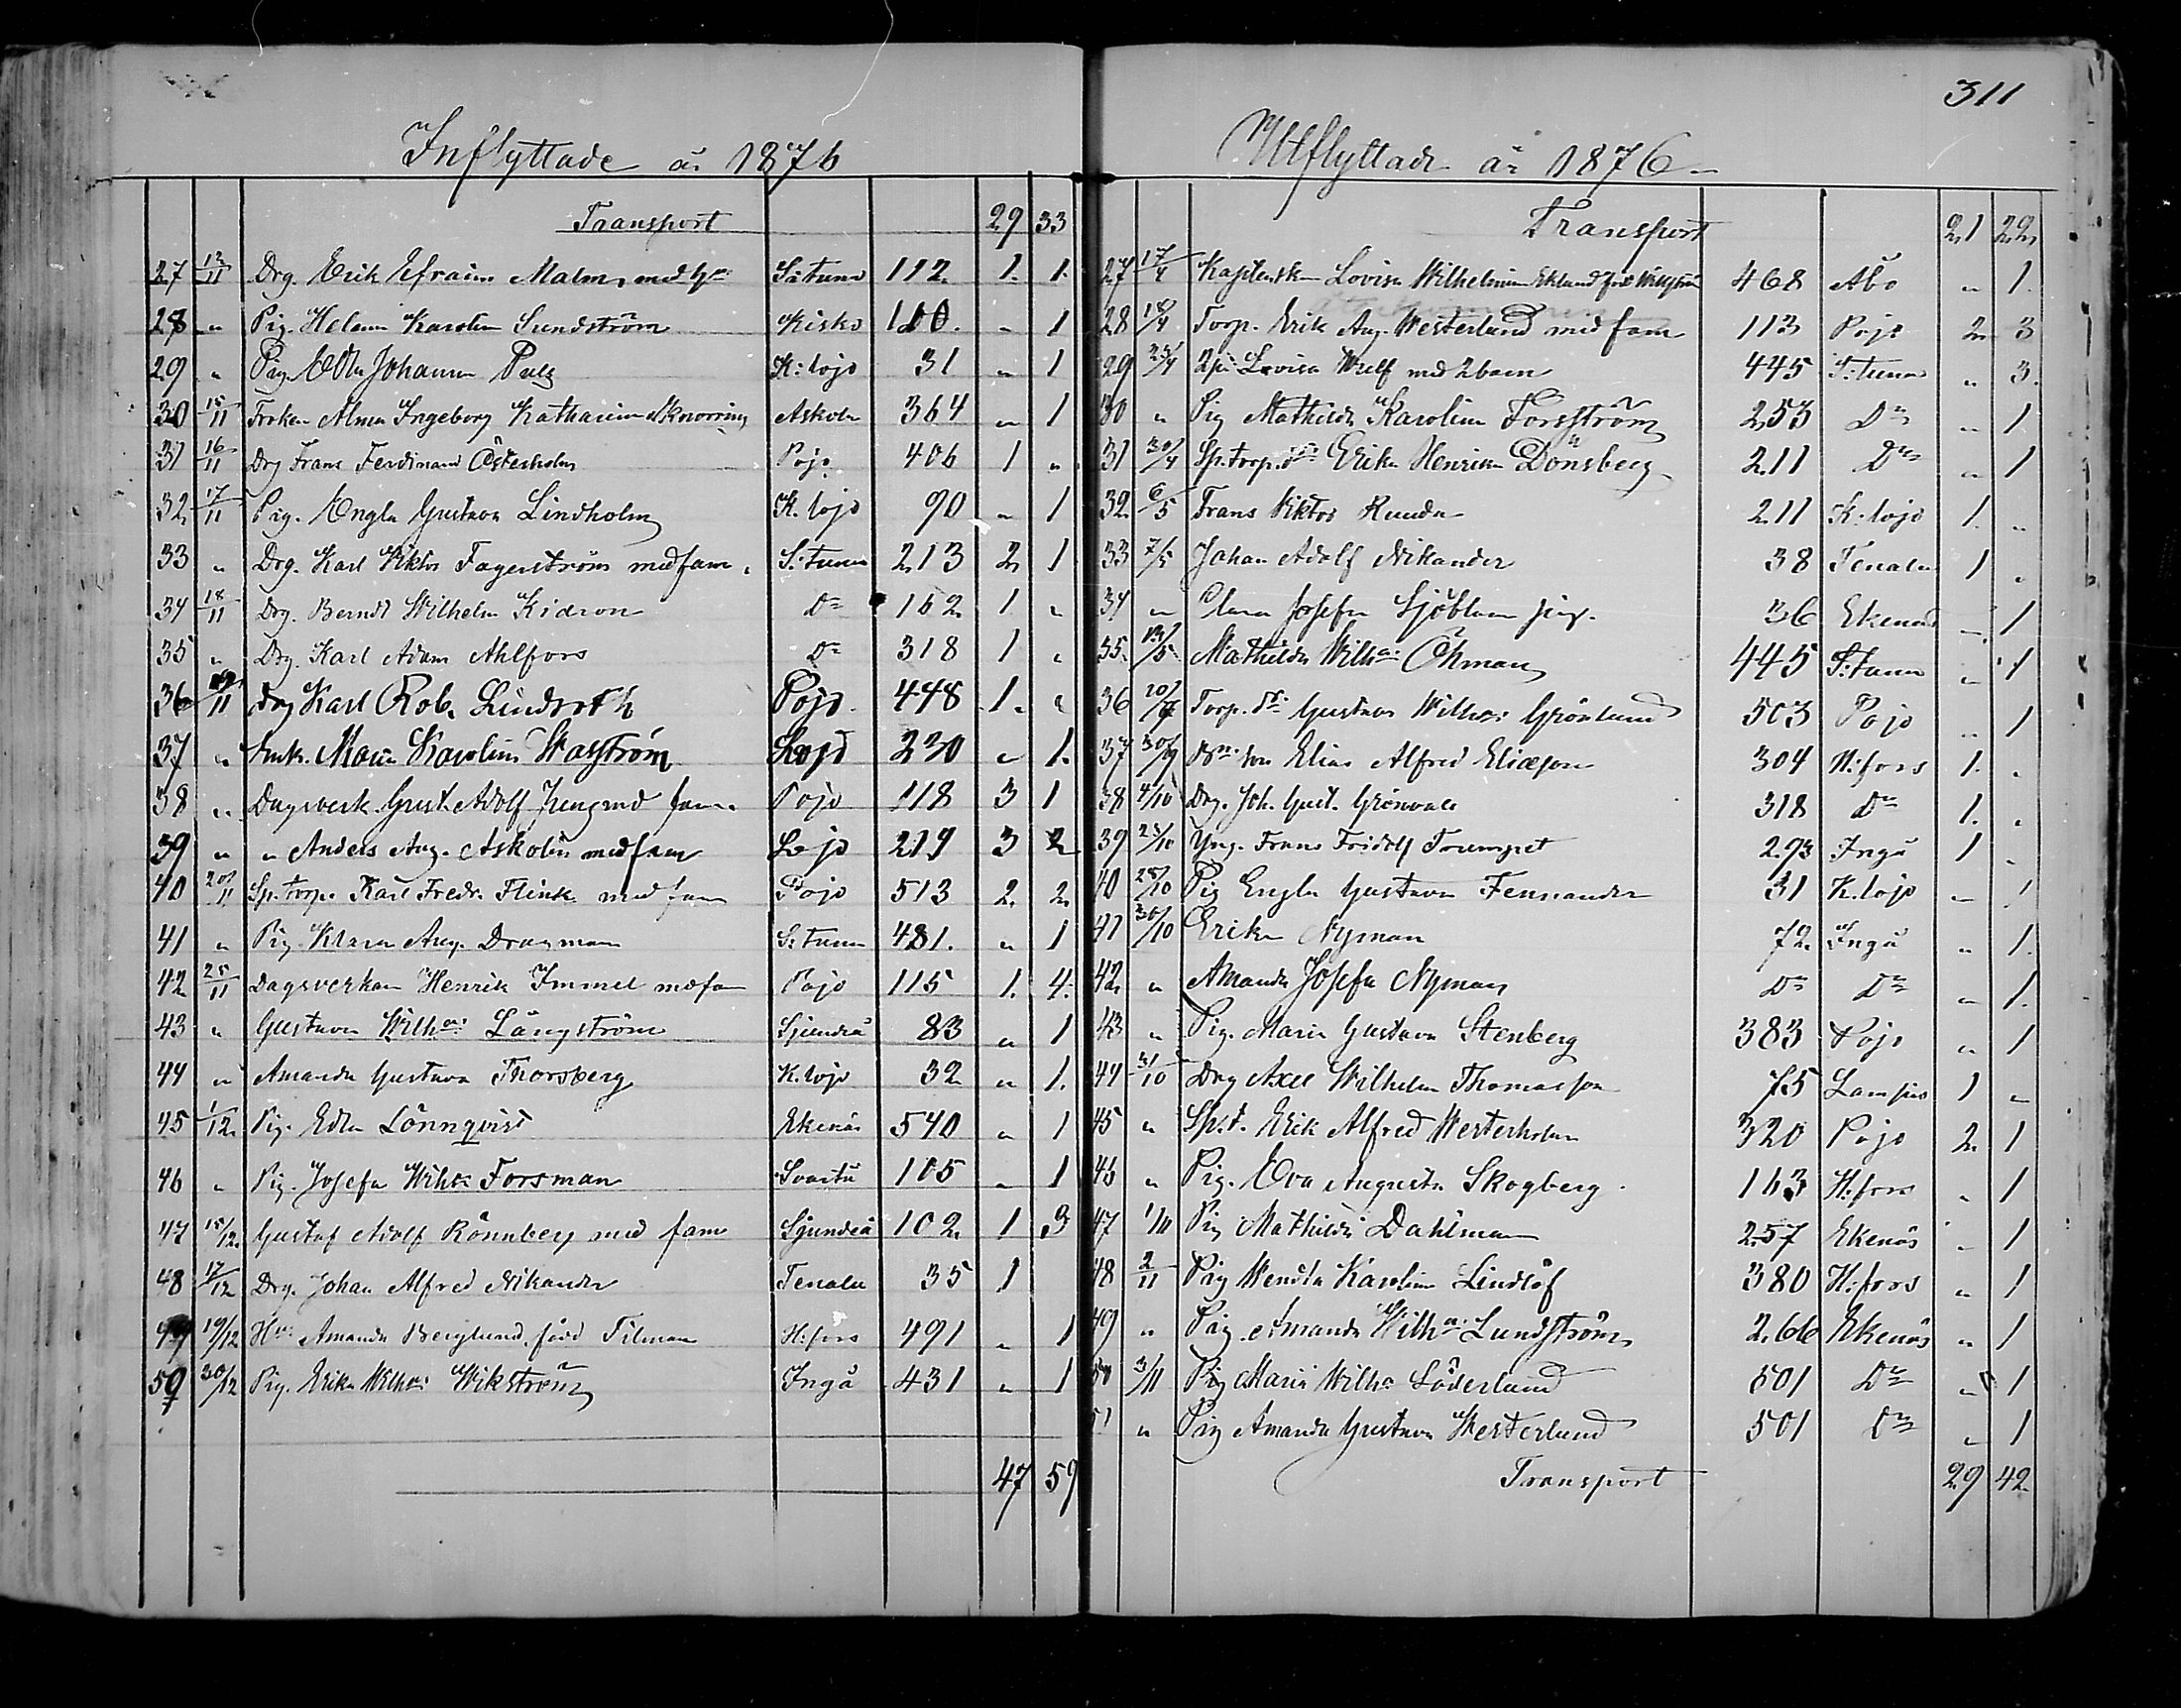 311
Inflyttade år 1876
Transport 29 33
27 12/11 Drg. Erik Efraim Malm, med h S:tuna 112. 1. 1.
28 " Pig. Helena Karolin Sundström Kisko 100. " 1
29 " Pig. Edla Johanna K:lojo 31 " 1
30 15/11 Froken Alma Ingeborg Katharina Aknorring Askola 364 " 1
31 16/11 Drg Frans Ferdinand Österholm Pojo 406 1 "
32 17/11 Pig. Engla Gustava Lindholm K. lojo 90 " 1
33 " Drg. Karl Viktor Fagerström med fam. S:tuna 213 2 1
34 18/11 Drg. Berndt Wilhelm Kidron Do 162 1 "
35 " Drg. Karl Adam Ahlfors Do 318 1 "
36 19/11 Drg Karl Rob. Lindroth Pojo 448 1. "
37 " Enk. Maria Karolina Lojo 230 " 1.
38 " Dagsverk. Gust. Adolf Ljung med fam. Pojo 118 3 1
39 " " Anders Aug. Askolin med fam Lojo 219 3 2
40 20/11 Sp.torp. Karl Fredr. Flink med fam Pojo 513 2. 2.
41 " Pig. Klara Aug. Dragman S:tuna 481. " 1
42 25/11 Dagsverkan Henrik Immel med fam Pojo 115 1. 4.
43 " Gustava Wilha: Långström Sjundeå 83 " 1
44 " Amanda Gustava Thorsberg K.lojo 32 " 1.
45 1/12. Pig. Edla Lönnqvist Ekenäs 540 " 1
46 " Pig. Josefa Wilha: Forsman Svartå 105 " 1
47 15/12. Gustaf Adolf Rönnberg med fam Sjundeå 102. 1 3
48 17/12 Drg. Johan Alfred Nikander Tenala 35 1
49 19/12 Amanda Berglund, född Tilman H:fors 491 " 1
50 30/12 Pig. Erika Wilha: Wikström Ingå 431 " 1
47 59
Utflyttade år 1876
Transport 21 22
27 17/4 Kaptensk Lovisa Wilhelmina Eklund född 468 Åbo " 1.
28 18/4 Torp. Erik Aug. Westerlund med fam 113 Pojo 2 3
29 25/4 Lovisa Wulf med 2 barn 445 S:tuna " 3.
30 " Pig Mathilda Karolina Forsström 253 Do " 1.
31 30/4 Sp:torp.dr Erika Henrika Dönsberg 211 Do " 1
32. 6/5 Frans Viktor Runda 211 K:lojo 1. "
33 7/5 Johan Adolf Nikander 38 Tenala 1 "
34 " Clara Josefa Sjöblom pig. 36 Ekenäs " 1
35. 13/5 Mathilda Wilha: Öhman 445 S:tuna " 1
36 Torp. dr Gustava Wilha: Grönlund 503 Pojo " 1
37 30/9 son Elias Alfred Eliæson 304 H:fors 1. "
38 4/10 Drg. Joh. Gust. Grönvall 318 Do 1. "
39 25/10 Yng. Frans Fridolf Trumpet 293 Ingå 1 "
40 28/10 Pig Engla Gustava Fennander 31 K.lojo " 1
41 30/10 Erika Nyman 72. Ingå " 1.
42. " Amanda Josefa Nyman Do Do " 1.
43 " Pig. Maria Gustava Stenberg 383 Pojo " 1
44 31/10 Drg Axel Wilhelm Thomasson 75 Lampis 1 "
45 " Sp.t. Erik Alfred Westerholm 320 Pojo 2 1
46 " Pig. Eva Augusta Skogberg 163 H:fors " 1
47 1/11 Pig Mathilda Dahlman 257 Ekenäs " 1
48 2/11 Pig Wendla Karolina Lindlöf 380 H:fors " 1
49 " Pig. Amanda Wilha: Lundström 266 Ekenäs " 1
50 3/11 Pig Maria Wilha Söderlund 501 Do " 1
51 " Pig Amanda Gustava Westerlund 501 Do " 1
Transport 29 42